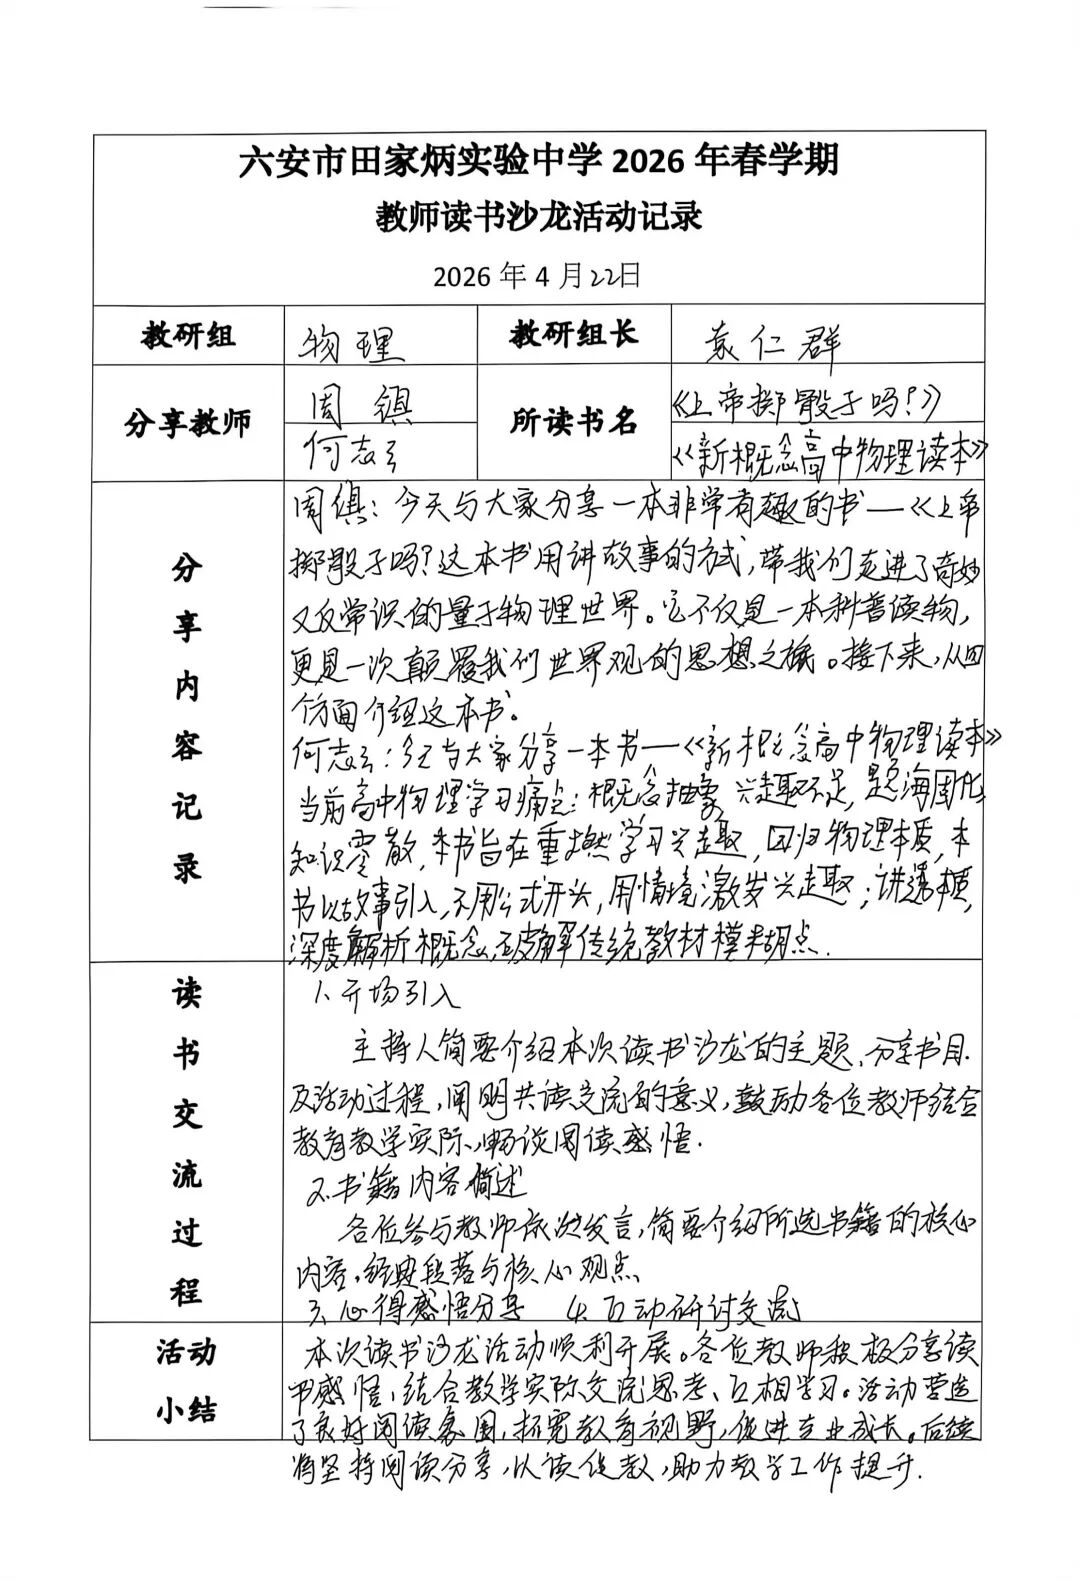 六安市田家炳实验中学2026年春学期
教师读书沙龙活动记录
2026年4月22日
教研组 物理 教研组长 袁仁群
分享教师 周 所读书名 《上帝掷骰子吗?》
何志云 《新概念高中物理读本》
分享内容记录
周：今天与大家分享一本非常有趣的书—《上帝
掷骰子吗?这本书用讲故事的方式,带我们走进了奇妙
又反常识的量子物理世界。它不仅是一本科普读物,
更是一次颠覆我们世界观的思想之旅。接下来,从四
个方面介绍这本书。
何志云:今天与大家分享一本书—《新概念高中物理读本》
当前高中物理学习痛点:概念抽象,兴趣不足,题海困扰,
知识零散,本书旨在重燃学习兴趣,回归物理本质,本
书以故事引入,不用公式开头,用情境激发兴趣;讲透本质,
深度解析概念,破解传统教材模糊点.
读书交流过程
1.开场引入
主持人简要介绍本次读书沙龙的主题、分享书目
及活动过程,阐明共读交流的意义,鼓励各位教师结合
教育教学实际,畅谈阅读感悟.
2.书籍内容简述
各位参与教师依次发言,简要介绍所选书籍的核心
内容,经典段落与核心观点
3.心得感悟分享 4.互动研讨交流
活动小结
本次读书沙龙活动顺利开展。各位教师积极分享读
书感悟,结合教学实际交流思考、互相学习。活动营造
了良好阅读氛围,拓宽教育视野,促进专业成长。后续
将坚持阅读分享,以读促教,助力教学工作提升.